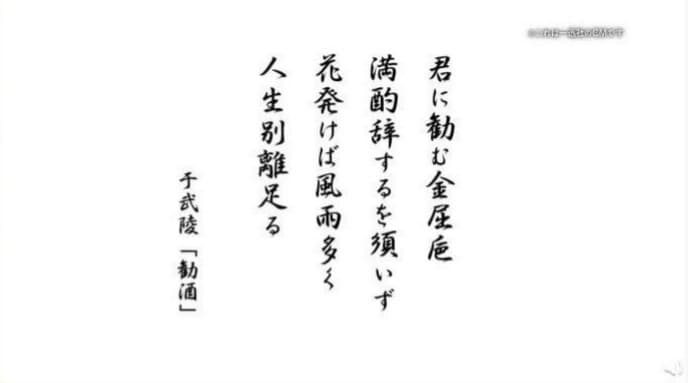 ※これは一迅社のCMです
君に勧む金屈巵
満酌辞するを須いず
花発けば風雨多く
人生別離足る
于武陵「勧酒」